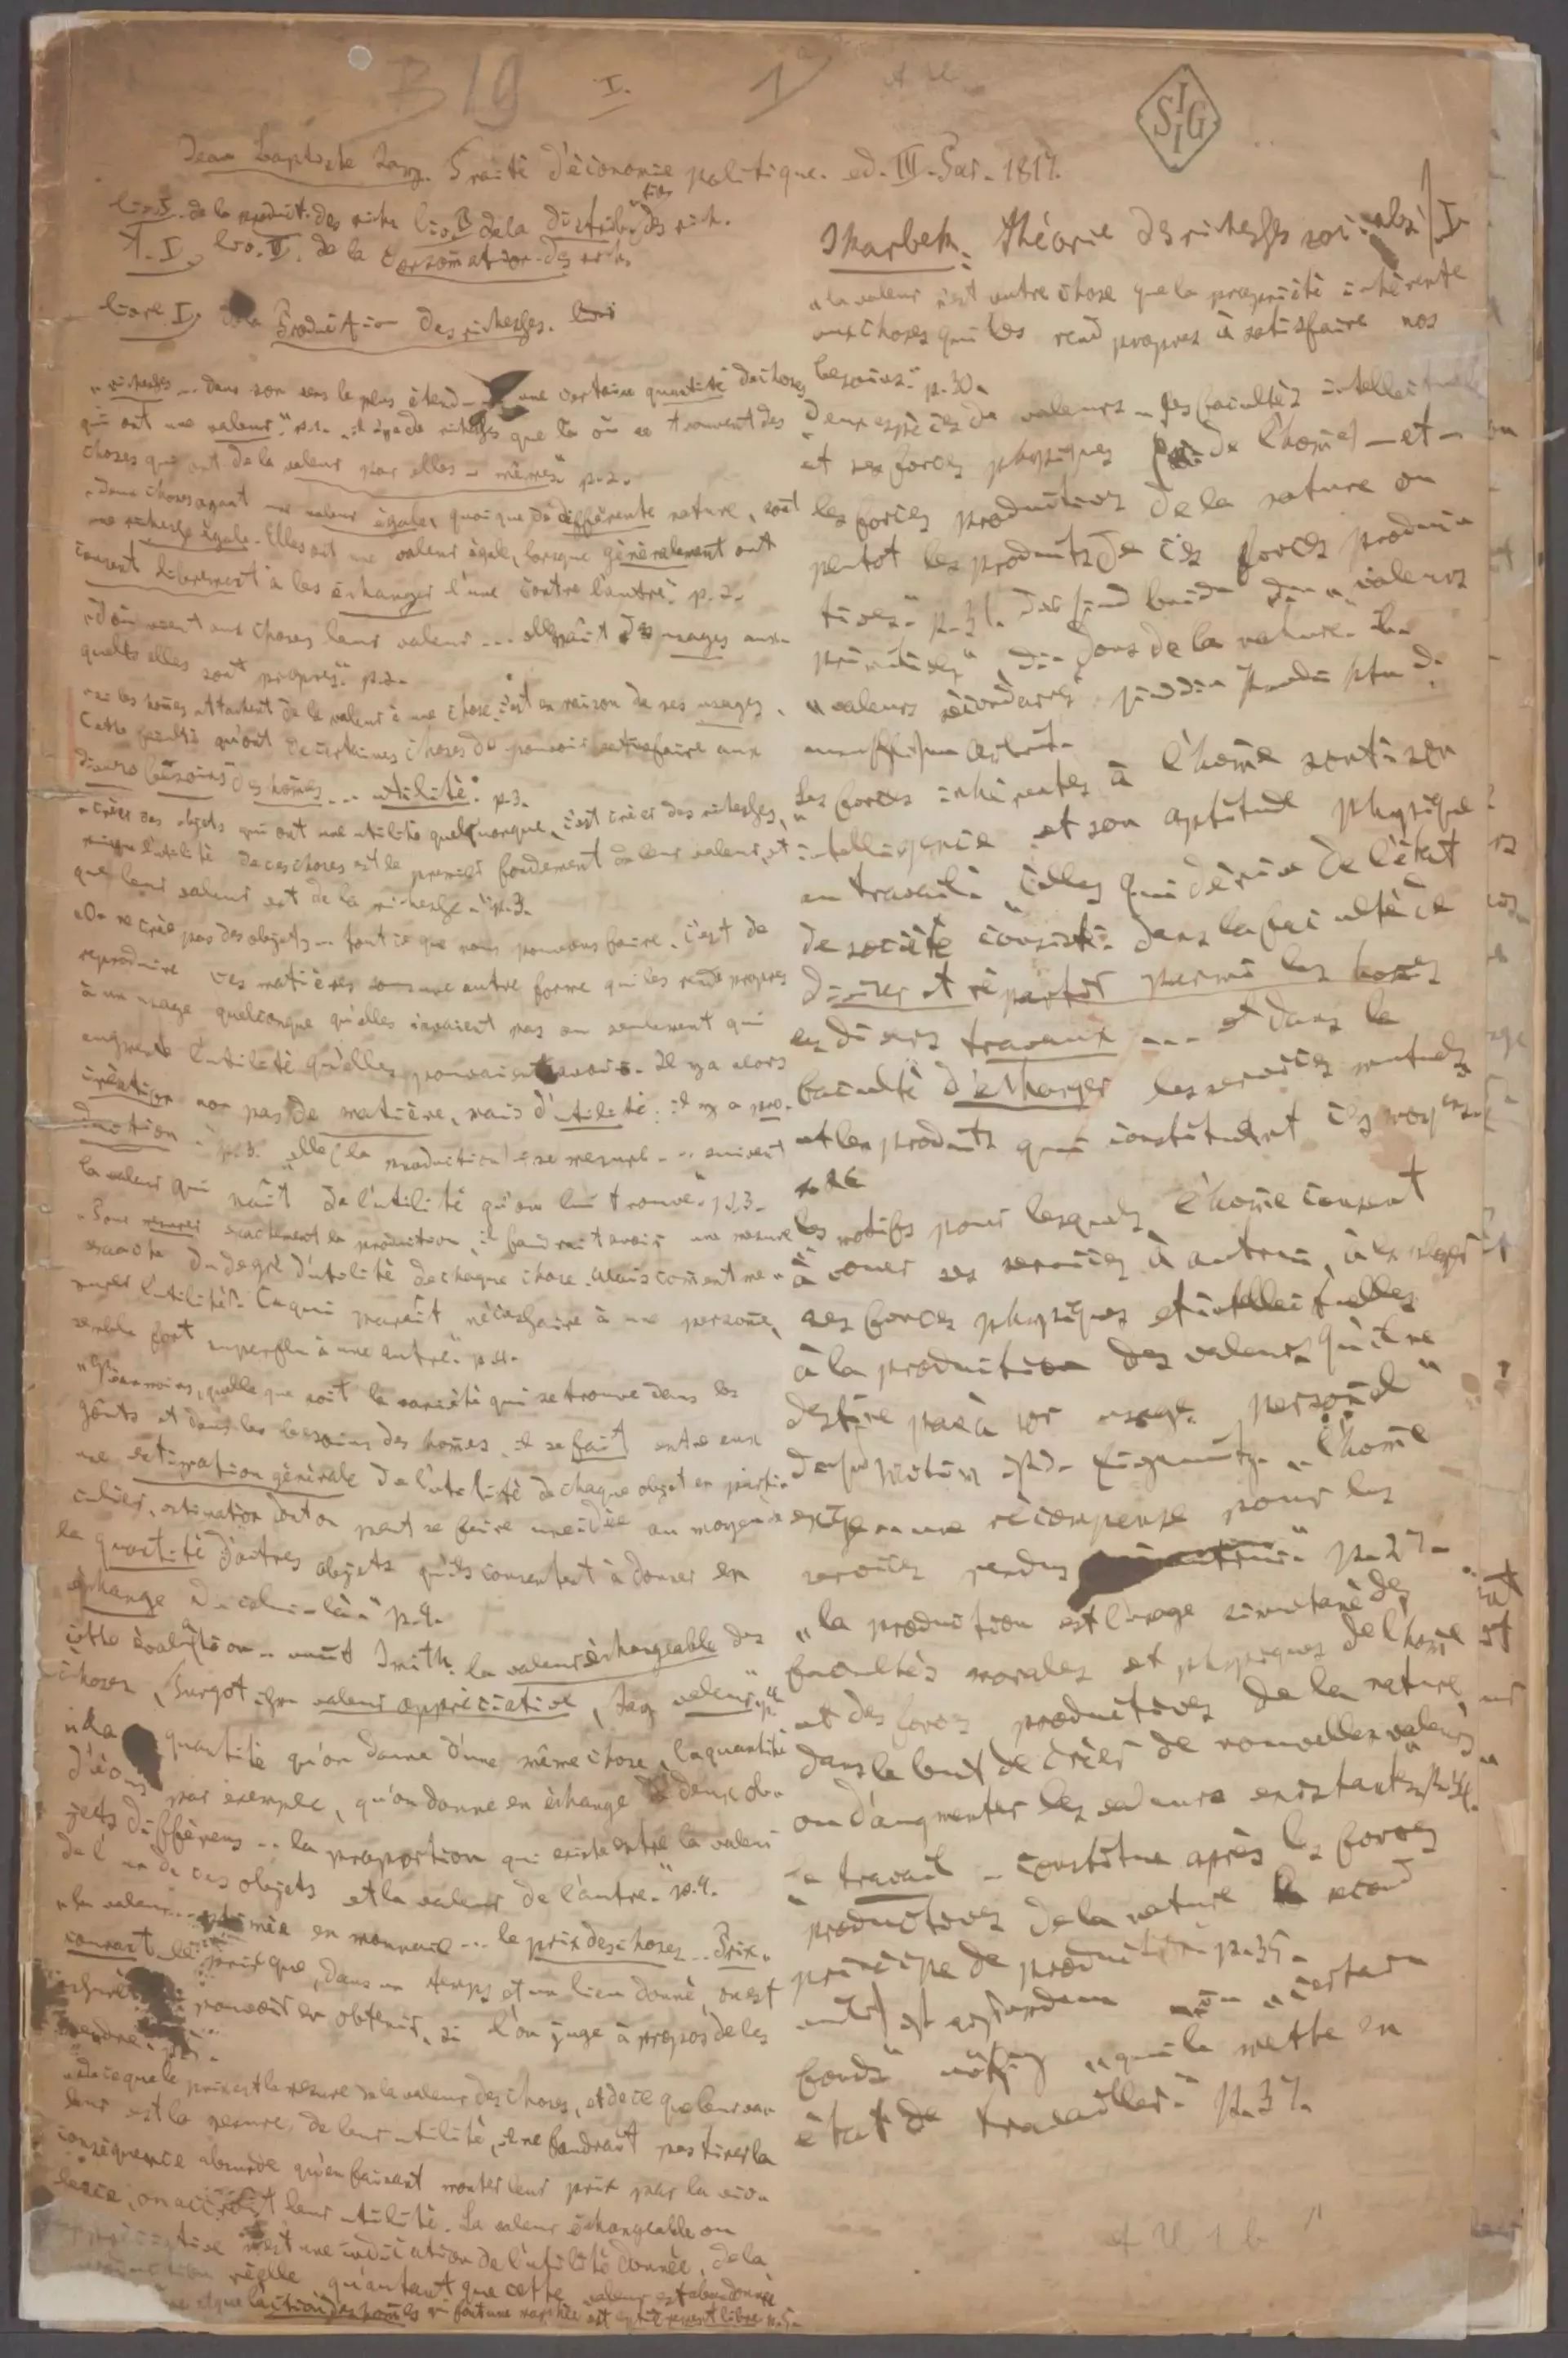 B 19 I. 1
I
S G
I
Jean Baptiste Say. Traité d'économie politique. ed. III. Par. 1817.
de la product. des rich. liv. II de la distribution des rich.
T. II, liv. III. de la Consomation des rich.
livre I. de la Production des richesses.
„richesses ... dans son sens le plus étendu ... une certaine quantité de choses
qui ont une valeur." p.1. „il n'y a de richesses que là où se trouvent des
choses qui ont de la valeur par elles-mêmes" p.2.
„deux choses ayant une valeur égale, quoique de différente nature, sont
une richesse égale. Elles ont une valeur égale, lorsque généralement ont
consent librement à les échanger l'une contre l'autre." p.2.
„d'où vient aux choses leur valeur ... des usages aux-
quels elles sont propres." p.2.
„si les homes attachent de la valeur à une chose, c'est en raison de ses usages.
Cette faculté qu'ont de certaines choses de pouvoir satisfaire aux
divers besoins des homes ... utilité." p.3.
„créer des objets qui ont une utilité quelquonque, c'est créer des richesses,
puisque l'utilité de ces choses est le premier fondement de leur valeur, et
que leur valeur est de la richesse." p.3.
„On ne crée pas des objets ... tout ce que nous pouvons faire, c'est de
reproduire ces matières sous une autre forme qui les rende propres
à un usage quelconque qu'elles n'avaient pas ou seulement qui
augmente l'utilité qu'elles pouvaient avoir. Il y a alors
création non pas de matière, mais d'utilité; il y a pro-
duction" p.3. „elle (la production) se mesure ... suivant
la valeur qui naît de l'utilité qu'on lui trouve." p.3.
„Pour mesurer exactement la production, il faudrait avoir une mesure
exacte du degré d'utilité de chaque chose. Mais coment me-
surer l'utilité? Ce qui paraît nécessaire à une persone,
semble fort superflu à une autre." p.4.
„Néanmoins, quelle que soit la variété qui se trouve dans les
goûts et dans les besoins des homes, il se fait entre eux
une estimation générale de l'utilité de chaque objet en parti-
culier, estimation dont on peut se faire une idée au moyen de
la quantité d'autres objets qu'ils consentent à donner en
échange de celui-là." p.4.
cette évaluation ... Smith. la valeur échangeable des
choses, Turgot valeur appréciative, Say valeur."
la quantité qu'on donne d'une même chose, la quantité
d'écus par exemple, qu'on donne en échange de deux ob-
jets différens ... la proportion qui existe entre la valeur
de l'un de ces objets et la valeur de l'autre." p.4.
„la valeur ... estimée en monnaie ... le prix des choses. Prix-
courant le prix que, dans un temps et un lieu donné, on est
assuré de pouvoir en obtenir, si l'on juge à propos de les
vendre."
„de ce que le prix est la mesure de la valeur des choses, et de ce que leur va-
leur est la mesure de leur utilité, il ne faudrait pas tirer la
conséquence absurde qu'en faisant monter leur prix par la vio-
lence, on accroît leur utilité. La valeur échangeable ou
appréciative n'est une indication de l'utilité donnée, de la
production réelle qu'autant que cette valeur est abandonnée
et que l'action des homes est entièrement libre p.5.
Skarbek. Théorie des richesses sociales I.
„la valeur n'est autre chose que la propriété inhérente
aux choses qui les rend propres à satisfaire nos
besoins." p.30.
Deux espèces de valeurs „les facultés intellectuelles
et ses forces physiques de l'home) — et —
les forces productives de la nature ou
plutot les produits de ces forces produc-
tives." p.31. „valeurs
primitives", dons de la nature.
„valeurs secondaires"
„les forces inhérentes à l'home sont: son
intelligence et son aptitude physique
au travail. „Celles qui dérive de l'état
de société consiste dans la faculté de
diviser et répartir parmi les homes
les divers travaux ... et dans la
faculté d'échanger les services mutuels
et les produits qui constituent ces moyens
p.26
„les motifs pour lesquels l'home consent
à vouer ses services à autrui, à employer
ses forces physiques et intellectuelles
à la production des valeurs qu'il ne
destine pas à son usage personel"
„l'home
exige une récompense pour les
services rendus p.27.
„la production est l'usage simultané des
facultés morales et physiques de l'home
et des forces productives de la nature,
dans le but de créer de nouvelles valeurs
ou d'augmenter les valeurs existantes"
le travail — constitue après les forces
productives de la nature le second
principe de production. p.35.
„certain
fonds" „qui le mette en
état de travailler." p.37.